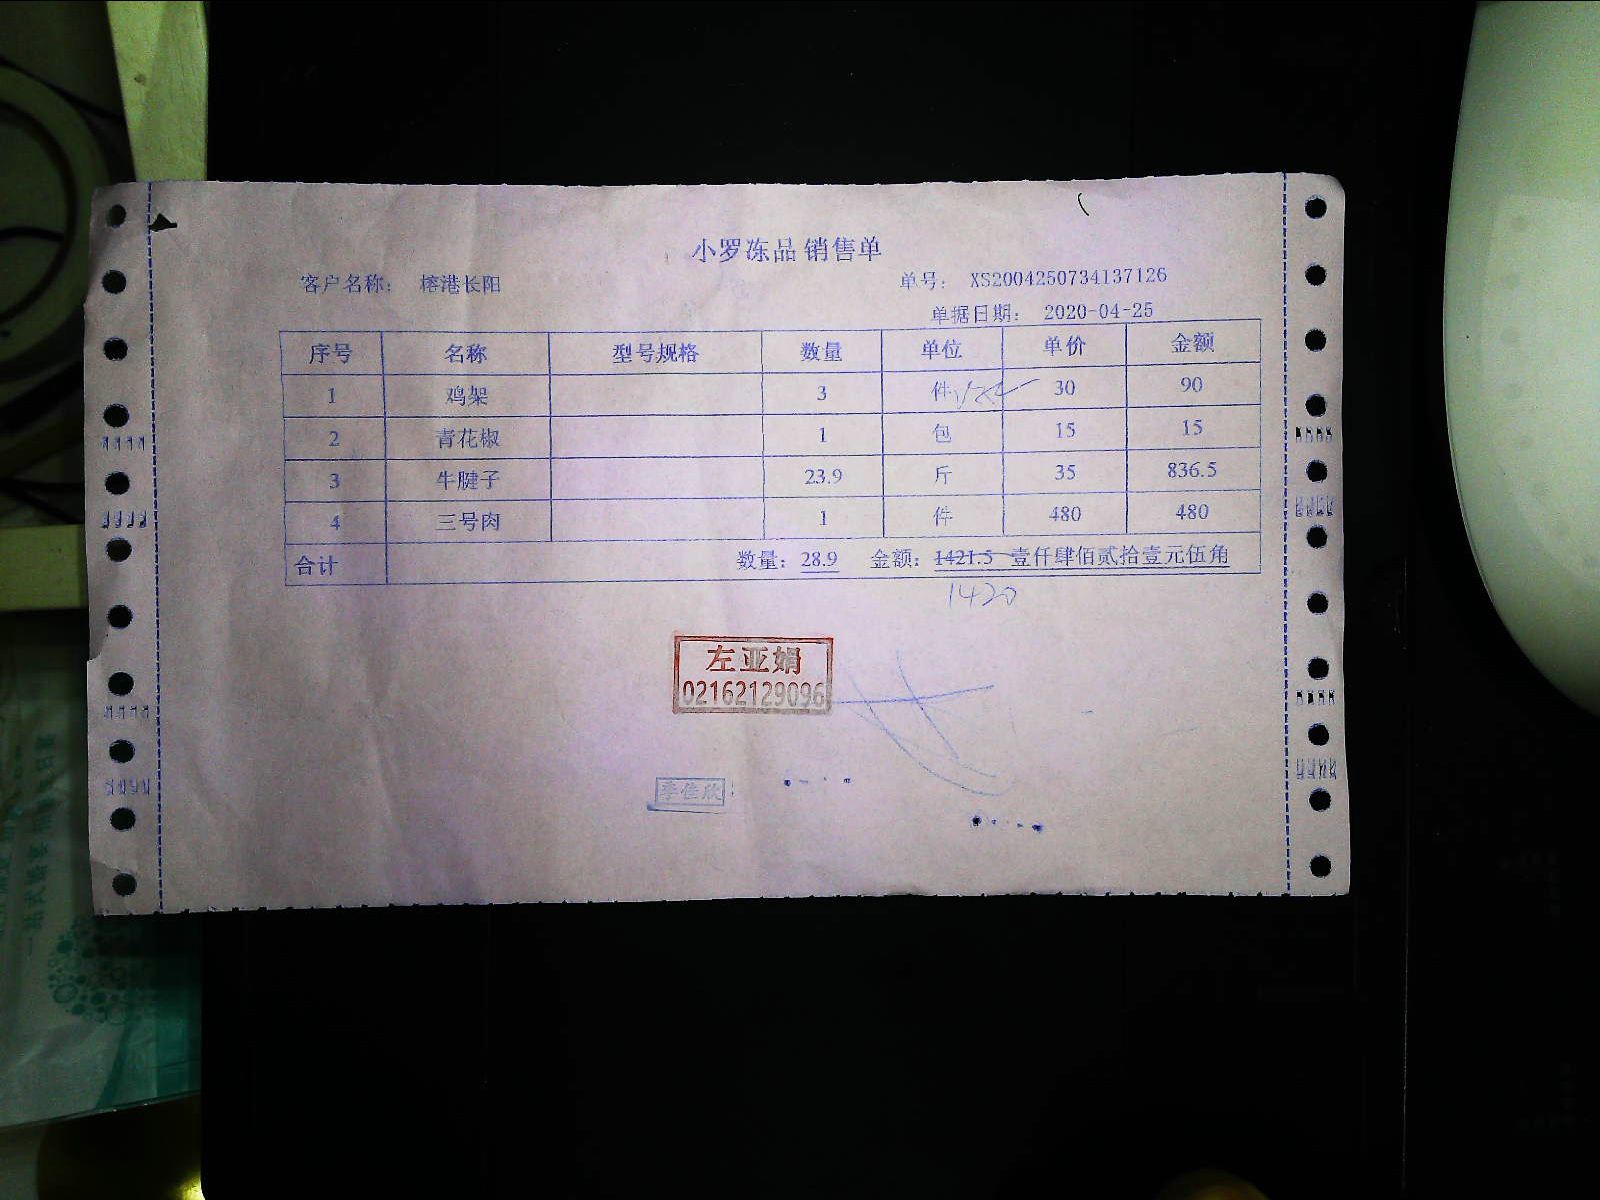 小罗冻品 销售单
客户名称： 榕港长阳 单号： XS2004250734137126
单据日期： 2020-04-25
序号 名称 型号规格 数量 单位 单价 金额
1 鸡架 3 件 30 90
2 青花椒 1 包 15 15
3 牛腱子 23.9 斤 35 836.5
4 三号肉 1 件 480 480
合计 数量： 28.9 金额： 1421.5 壹仟肆佰贰拾壹元伍角
1420
左亚娟
02162129096
季佳欣